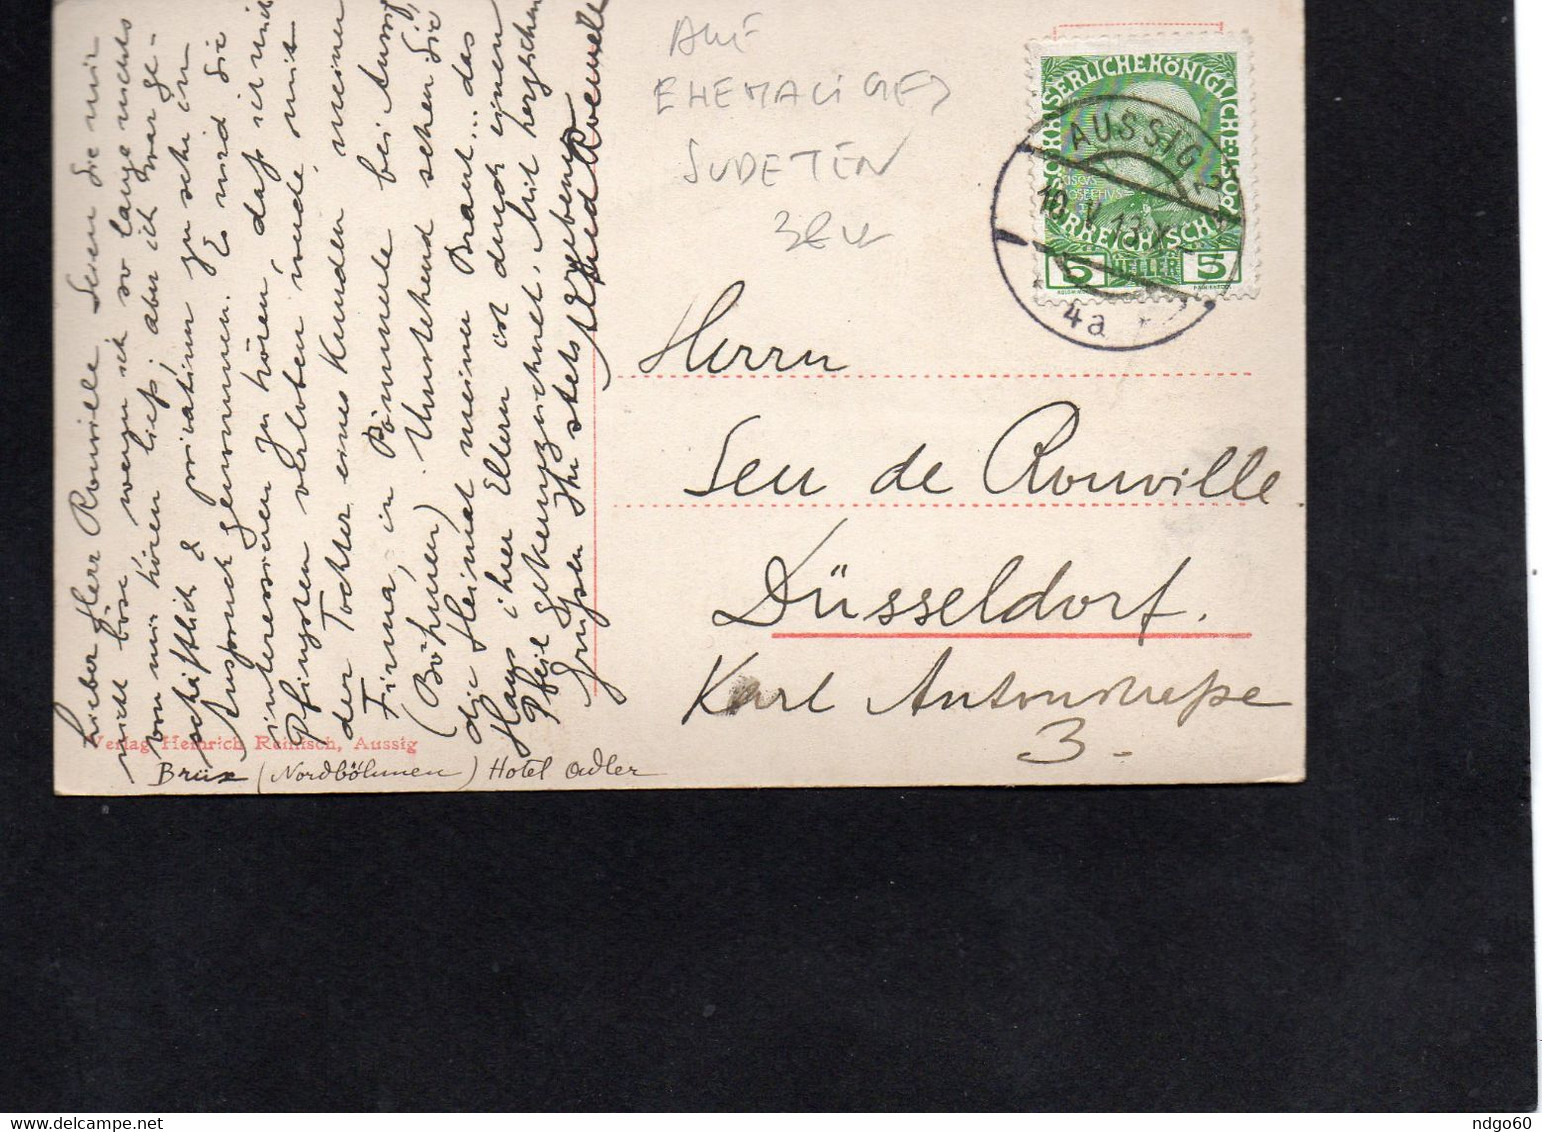 Lieber Herr Rouville Seien Sie mir
nicht böse wenn ich so lange nichts
von mir hören ließ; aber ich war ge-
schäftlich & privatim zu sehr in
Anspruch genommen. Es wird Sie
interessieren zu hören, daß ich mich
Pfingsten verloben werde, mit
der Tochter eines Kunden meiner
Firma, in Pömmerle bei Aussig
(Böhmen). Umstehend sehen Sie
die Heimat meiner Braut... das
Haus ihrer Eltern ist durch einen
Pfeil gekennzeichnet. Mit herzlichen
Grüßen Ihr stets ergebener
Verlag Heinrich Reinisch, Aussig
Brüx (Nordböhmen) Hotel Adler
AUS
EHEMALIGES
SUDETEN
KAISERLICHE KÖNIGLICHE
ÖSTERREICHISCHE POST
5 HELLER 5
AUSSIG
10.V.13
4a
Herrn
Seu de Rouville
Düsseldorf.
Karl Antonstraße
3.